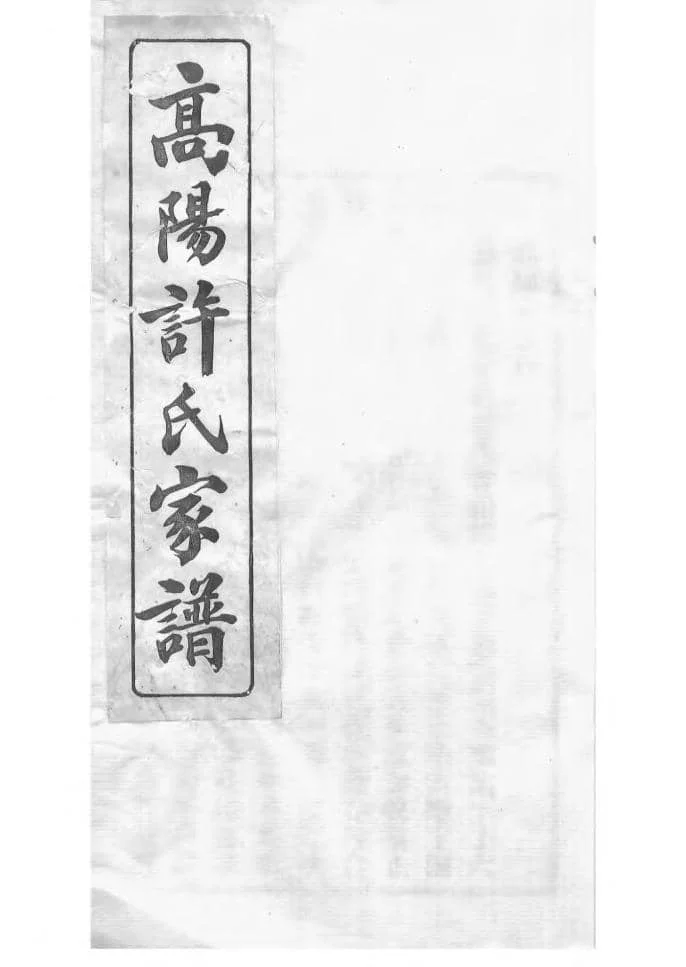 高陽許氏家譜